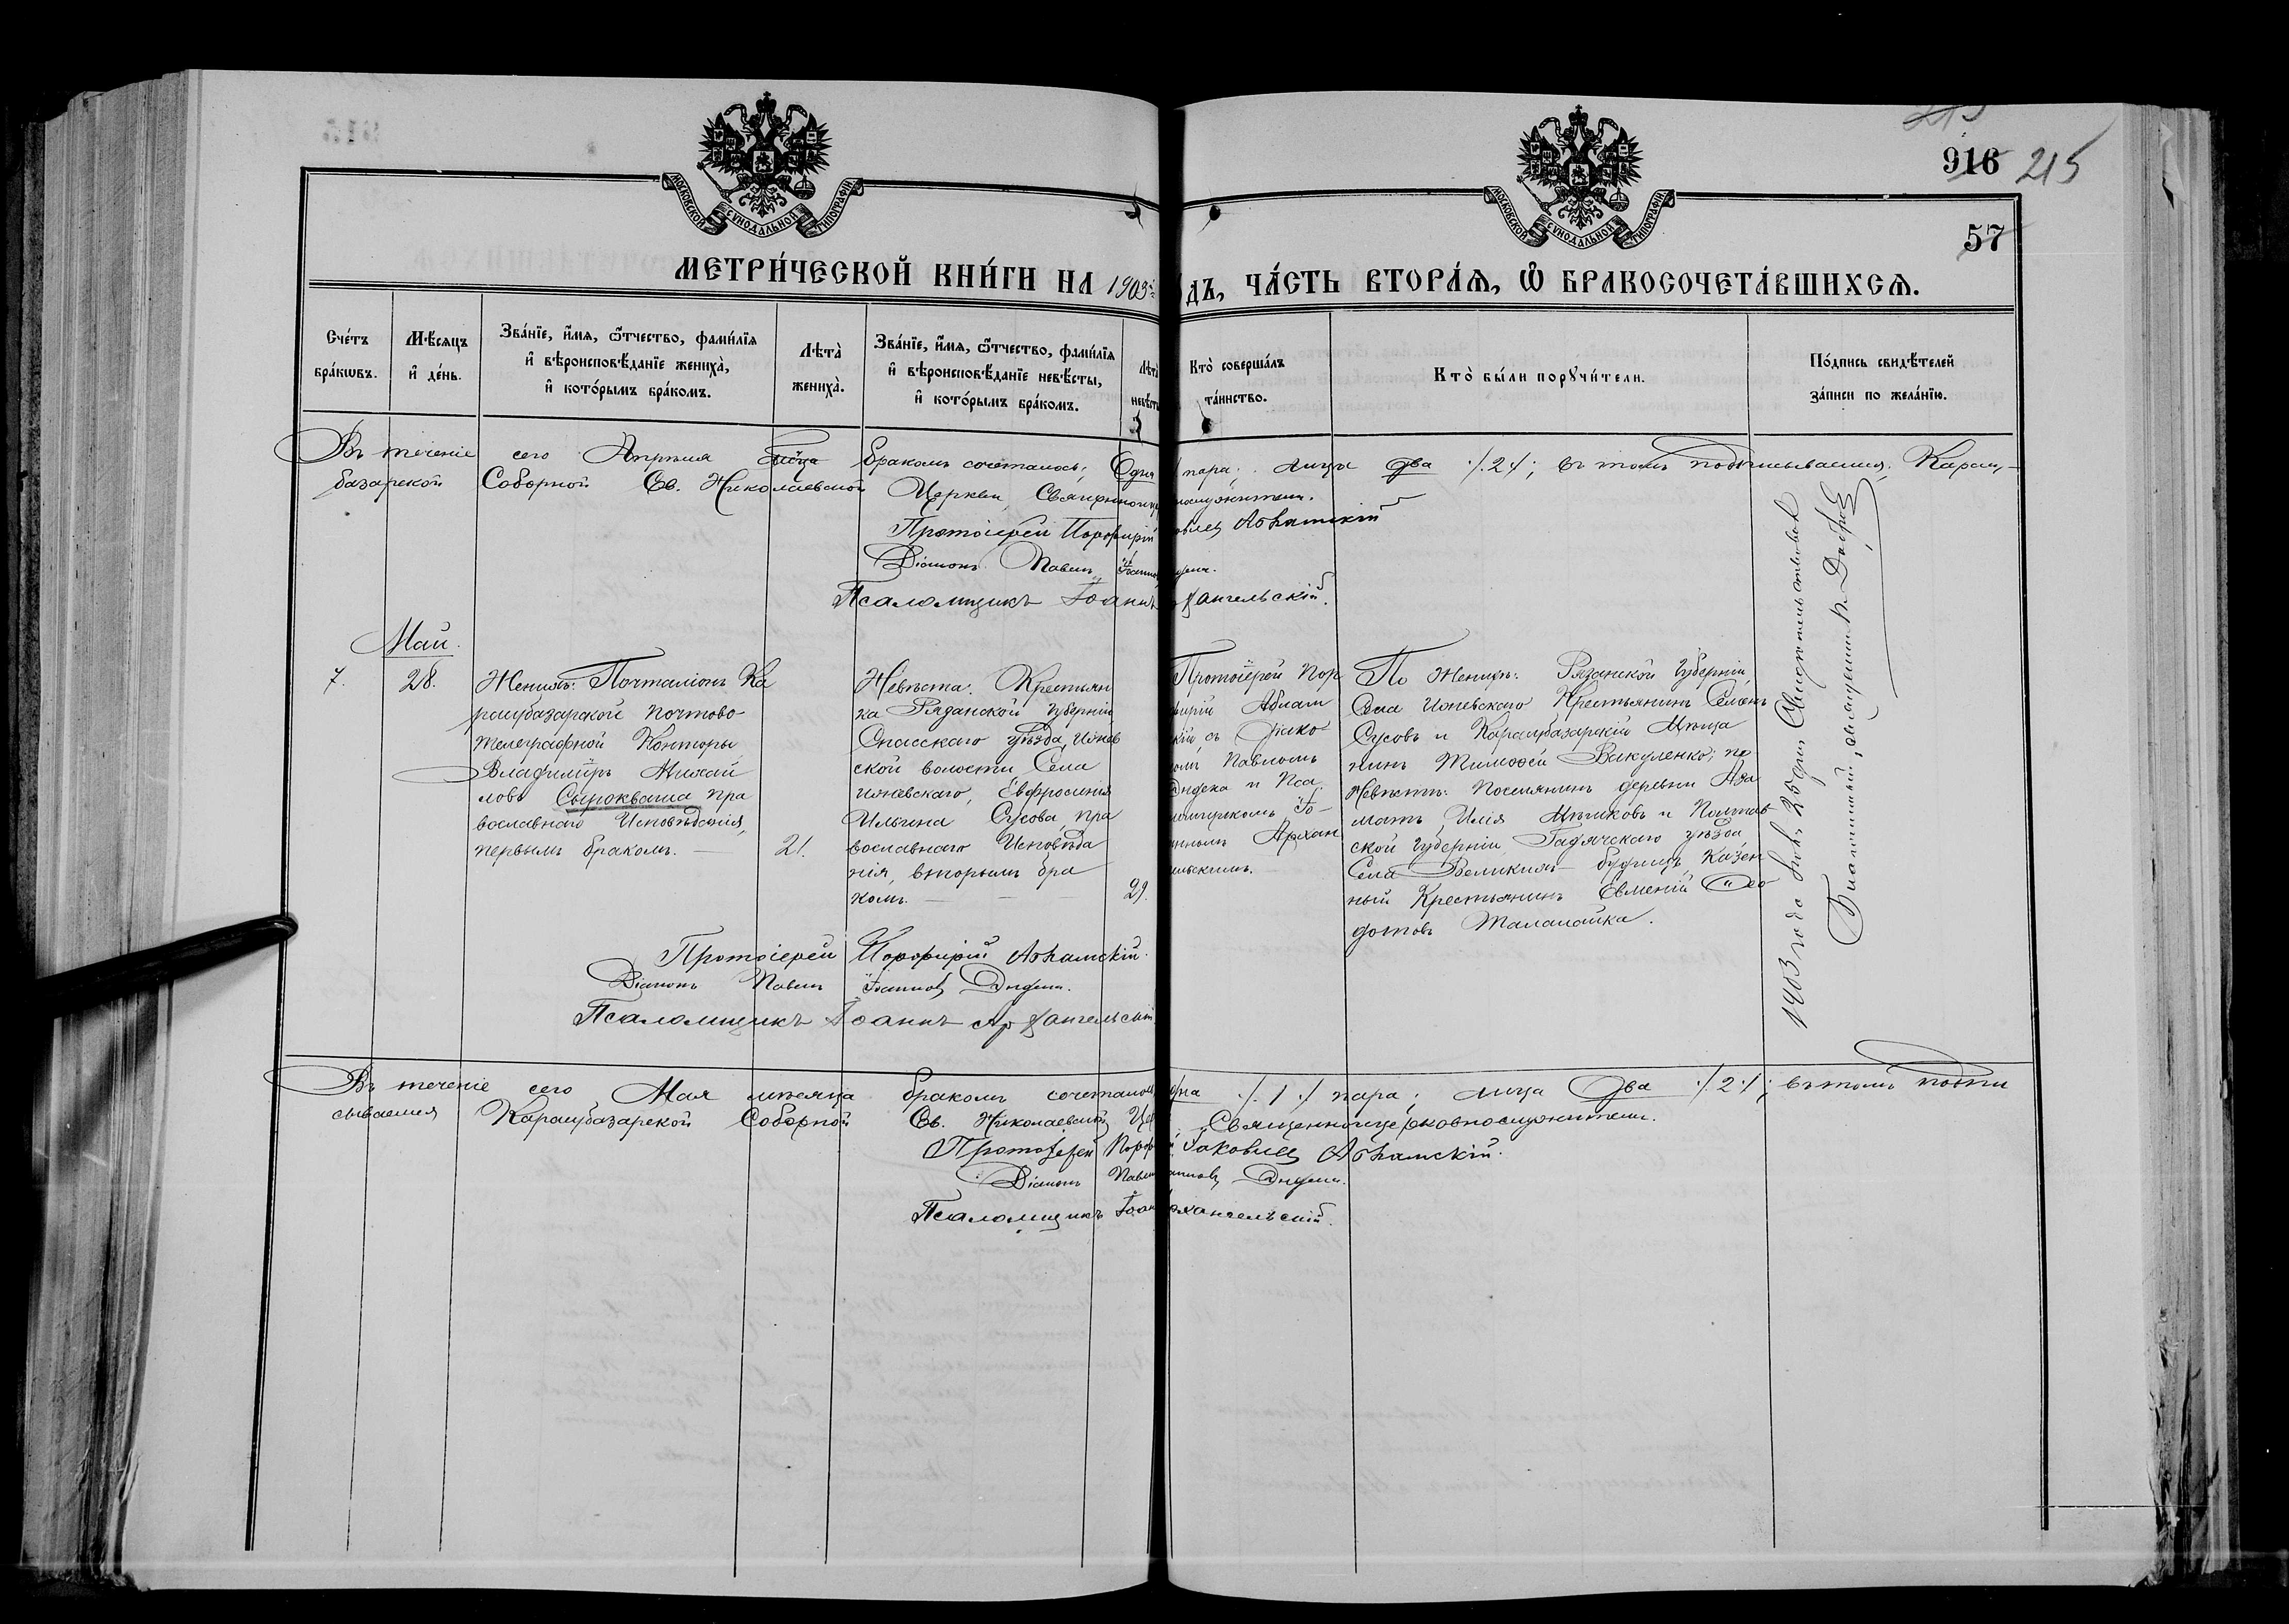 916 215
57
МОСКОВСКОЙ СѴНОДАЛЬНОЙ ТИПОГРАФІИ
МОСКОВСКОЙ СѴНОДАЛЬНОЙ ТИПОГРАФІИ
МЕТРИ́ЧЕСКОЙ КНИ́ГИ НА 1903 ДЪ, ЧА́СТЬ ВТОРА́Я, Ѽ БРАКОСОЧЕТА́ВШИХСѦ.
Сче́тъ бра́кѡвъ.
Мѣ́сяцъ и҆ де́нь.
Зва́нїе, и҆́мѧ, ѻ҆́тчество, фами́лїѧ и҆ вѣроисповѣ́данїе женихà, и҆ кото́рымъ бра́комъ.
Лѣ̀та женихà.
Зва́нїе, и҆́мѧ, ѻ҆́тчество, фами́лїѧ и҆ вѣроисповѣ́данїе невѣ́сты, и҆ кото́рымъ бра́комъ.
Лѣта невѣсты
Кто̀ соверша́лъ та́инство.
Кто̀ бы́ли порꙋчи́тели.
По́дпись свидѣ́телей за́писи по жела́нїю.
Въ теченіе сего Апрѣля мѣсяца бракомъ сочеталось; Одна пара; лица два /.2./; въ томъ подписываемся, Карасу-
базарской Соборной Св. Николаевской Церкви, Священноцер
Протоіерей Порфирій Абламскій
Діаконъ Павелъ Іоанновъ
Псаломщикъ Іоаннъ Архангельскій.
Май.
7. 28.
Женихъ: Почталіонъ Ка
расубазарской Почтово-
Телеграфной Конторы
Владиміръ Михай
ловъ Сыроквашa пра
вославнаго Исповѣданія,
первымъ бракомъ. —
21.
Невѣста. Крестьян
ка Рязанской Губерніи
Спасскаго уѣзда, Ижев
ской волости Села
Ижевскаго, Евфросинія
Ильина Сусова, пра
вославнаго Исповѣда
нія, вторымъ бра
комъ. —
29.
Протоіерей Пор
фирій Аблам
скій, съ Діако
номъ Павломъ
и Пса
ломщикомъ Іо-
анномъ Архан
гельскимъ.
По Женихѣ: Рязанской Губерніи,
Села Ижевскаго Крестьянинъ Семенъ
Сусовъ и Карасубазарскій Мѣща
нинъ Тимофей Вакуленко; по
Невѣстѣ: Поселянинъ деревни Аза
матъ, Илія Мѣшковъ и Полтав
ской Губерніи, Гадячскаго уѣзда
Села Великихъ-Будищъ Казен
ный Крестьянинъ Евменій Ѳео
дотовъ Талалайка.
Протоіерей Порфирій Абламскій.
Діаконъ Павелъ Іоанновъ
Псаломщикъ Іоаннъ Архангельскій
1903 года 25 дня Свидѣтельствовалъ
Благочинный, священникъ
Въ теченіе сего Мая мѣсяца бракомъ сочеталось одна /.1./ пара; лица Два /.2./; въ томъ подпи
сываемся Карасубазарской Соборной Св. Николаевской Цер Священноцерковнослужители.
Протоіерей Порфирій Іаковлевъ Абламскій.
Діаконъ Павелъ Іоанновъ
Псаломщикъ Іоаннъ Архангельскій.